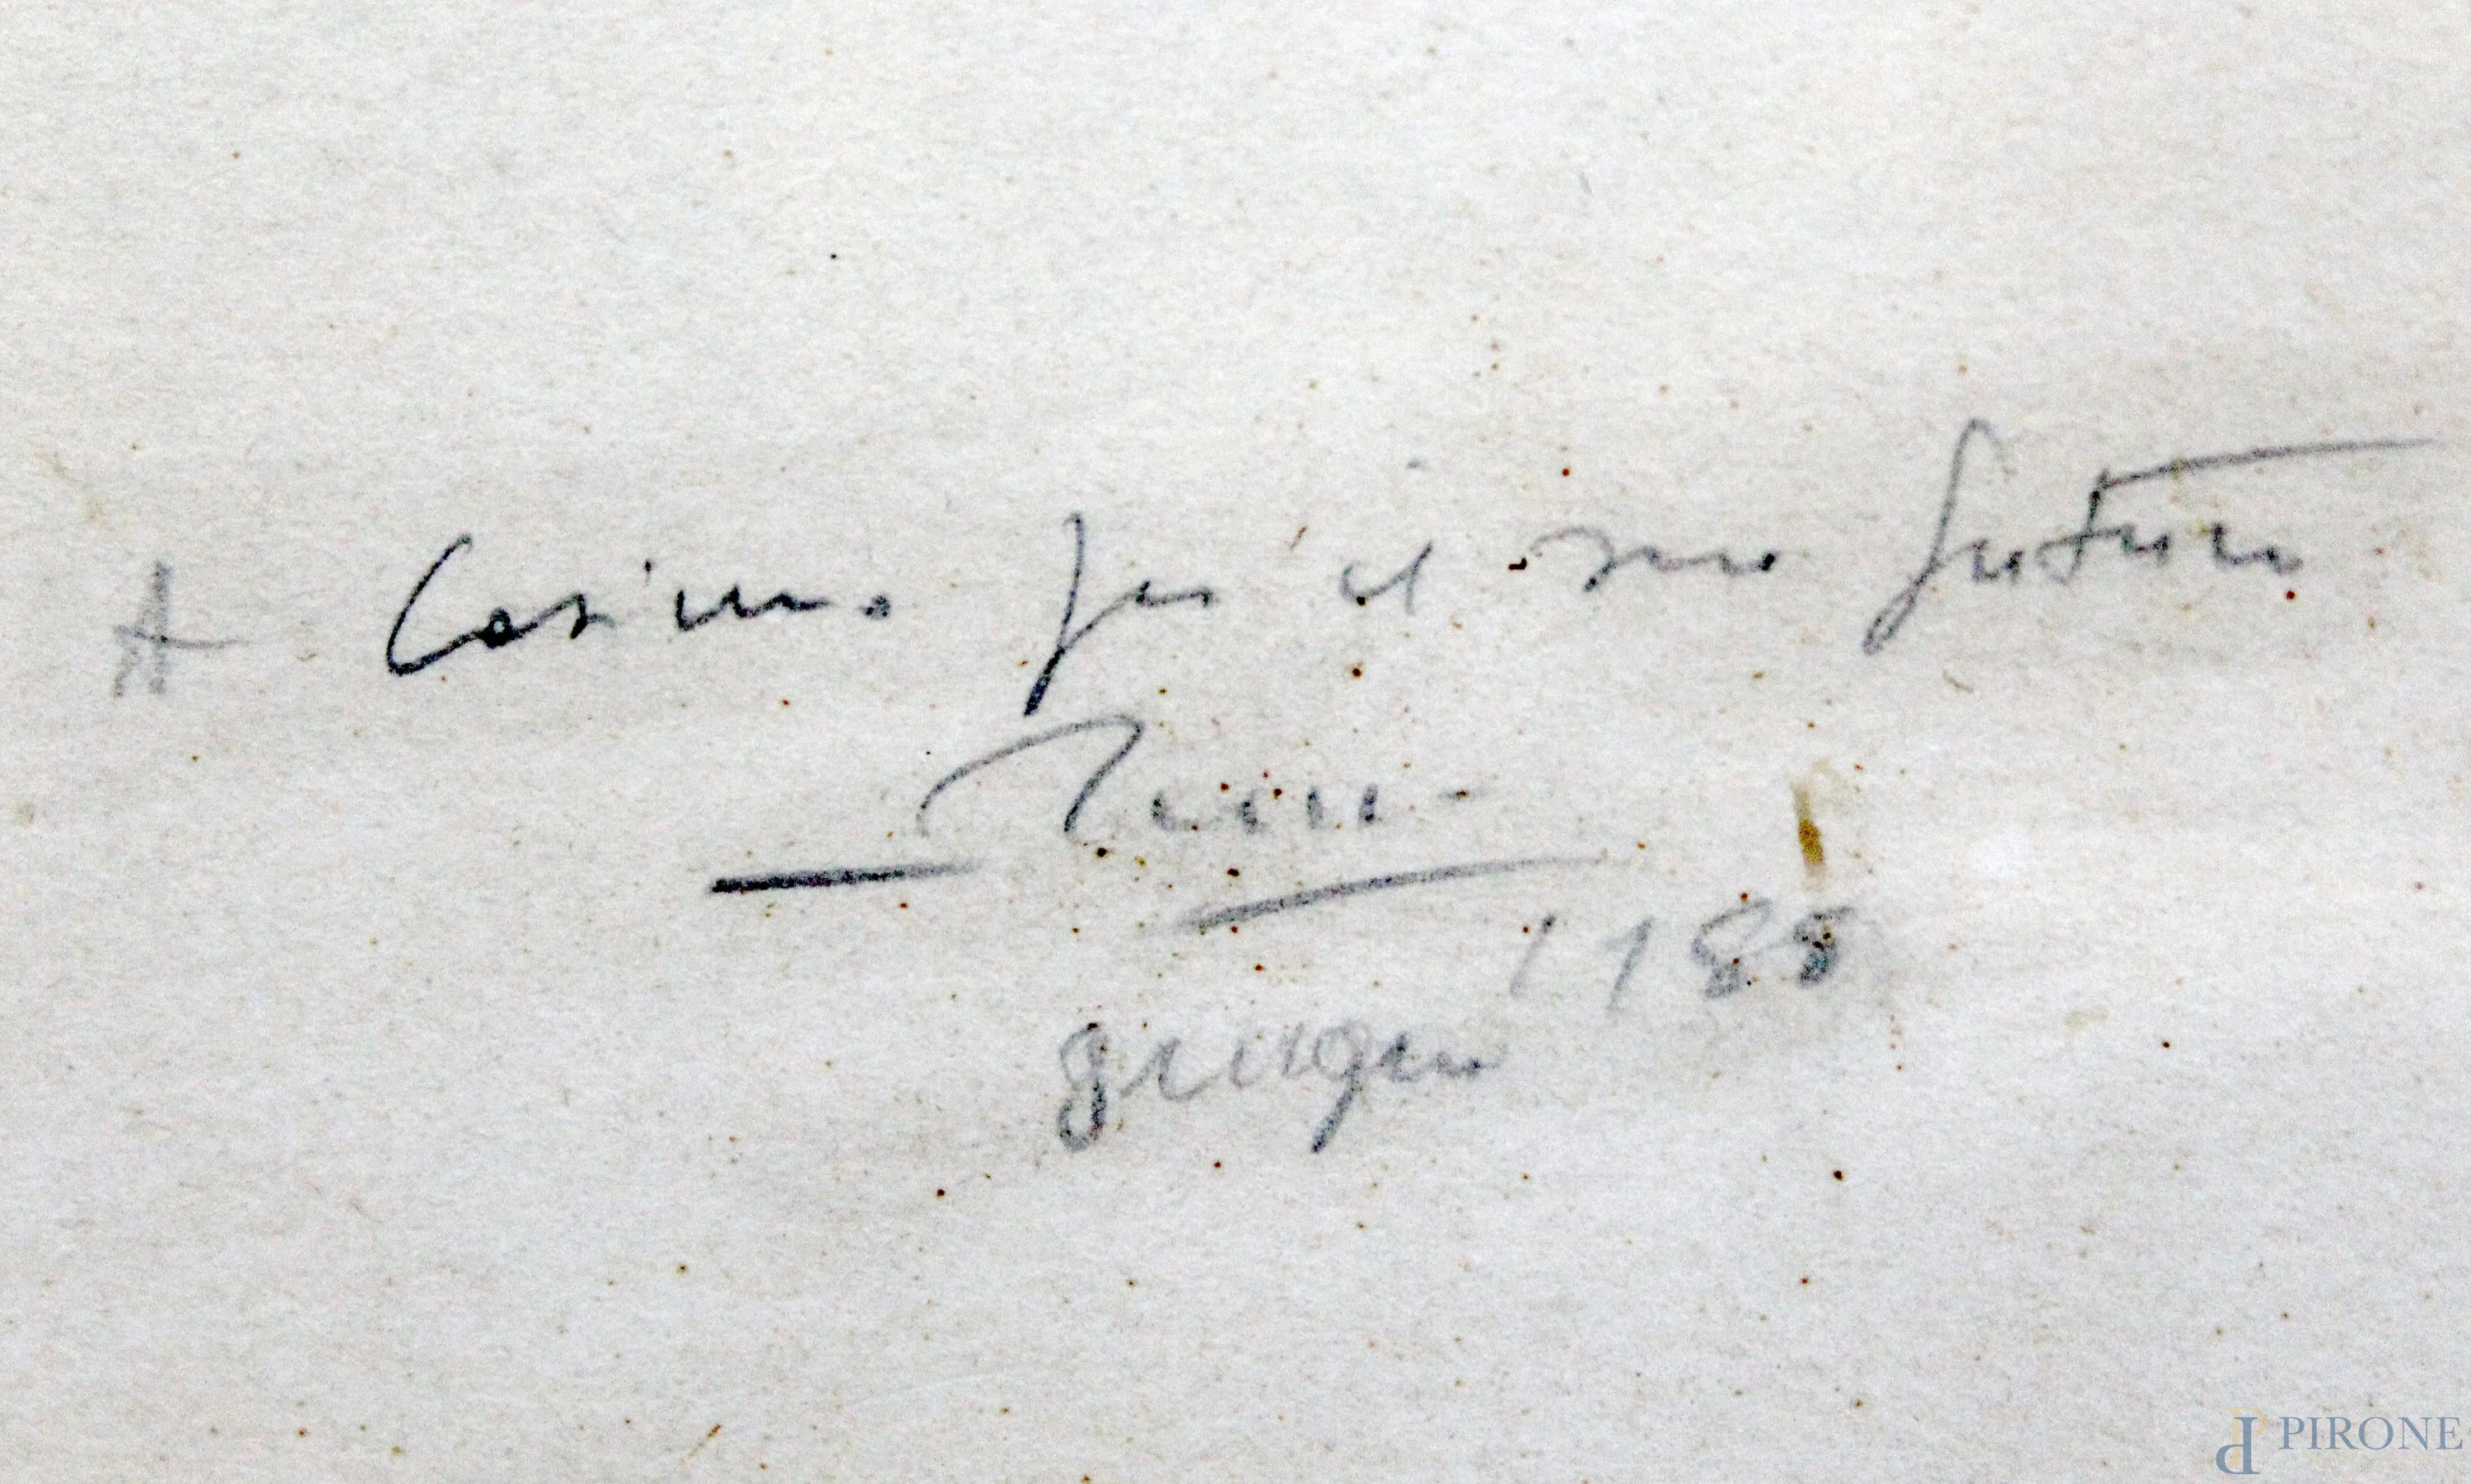 A Cosimo per il suo futuro
1188
giugno
PIRONE